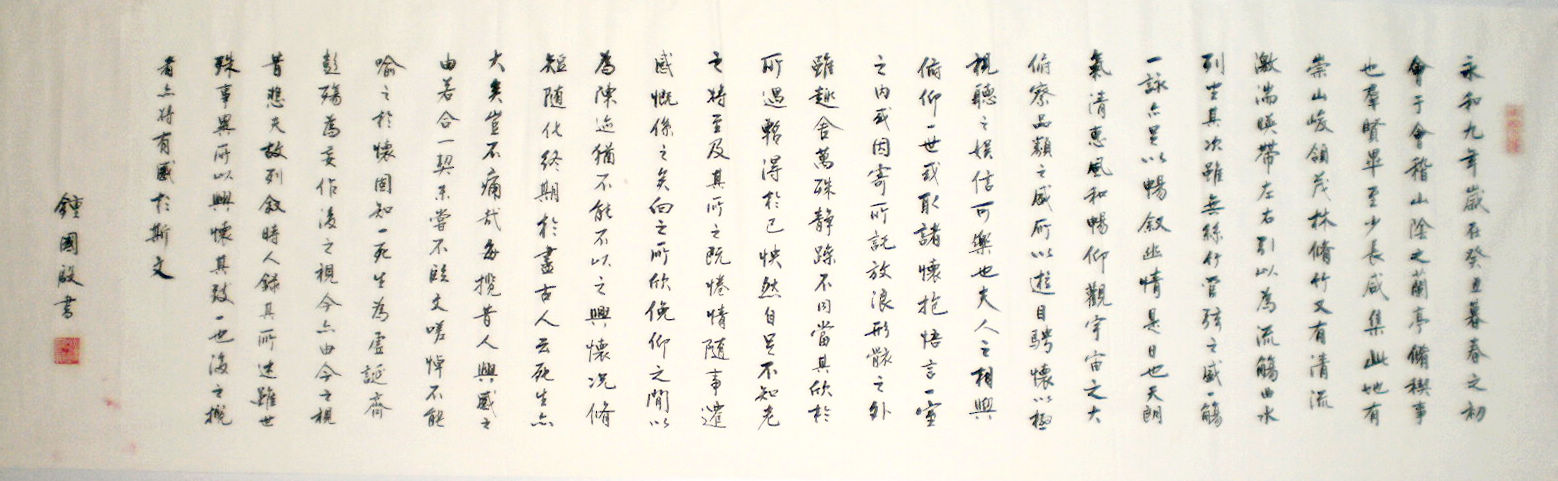 永和九年歲在癸丑暮春之初
會于會稽山陰之蘭亭脩稧事
也羣賢畢至少長咸集此地有
崇山峻領茂林脩竹又有清流
激湍暎帶左右引以為流觴曲水
列坐其次雖無絲竹管弦之盛一觴
一詠亦足以暢敘幽情是日也天朗
氣清惠風和暢仰觀宇宙之大
俯察品類之盛所以遊目騁懷以極
視聽之娛信可樂也夫人之相與
俯仰一世或取諸懷抱悟言一室
之内或因寄所託放浪形骸之外
雖趣舍萬殊靜躁不同當其欣於
所遇暫得於己怏然自足不知老
之將至及其所之既惓情隨事遷
感慨係之矣向之所欣俛仰之間以
為陳迹猶不能不以之興懷况脩
短隨化終期於盡古人云死生亦
大矣豈不痛哉每攬昔人興感之
由若合一契未嘗不臨文嗟悼不能
喻之於懷固知一死生為虛誕齊
彭殤為妄作後之視今亦由今之視
昔悲夫故列敘時人錄其所述雖世
殊事異所以興懷其致一也後之攬
者亦將有感於斯文
鍾國殷書